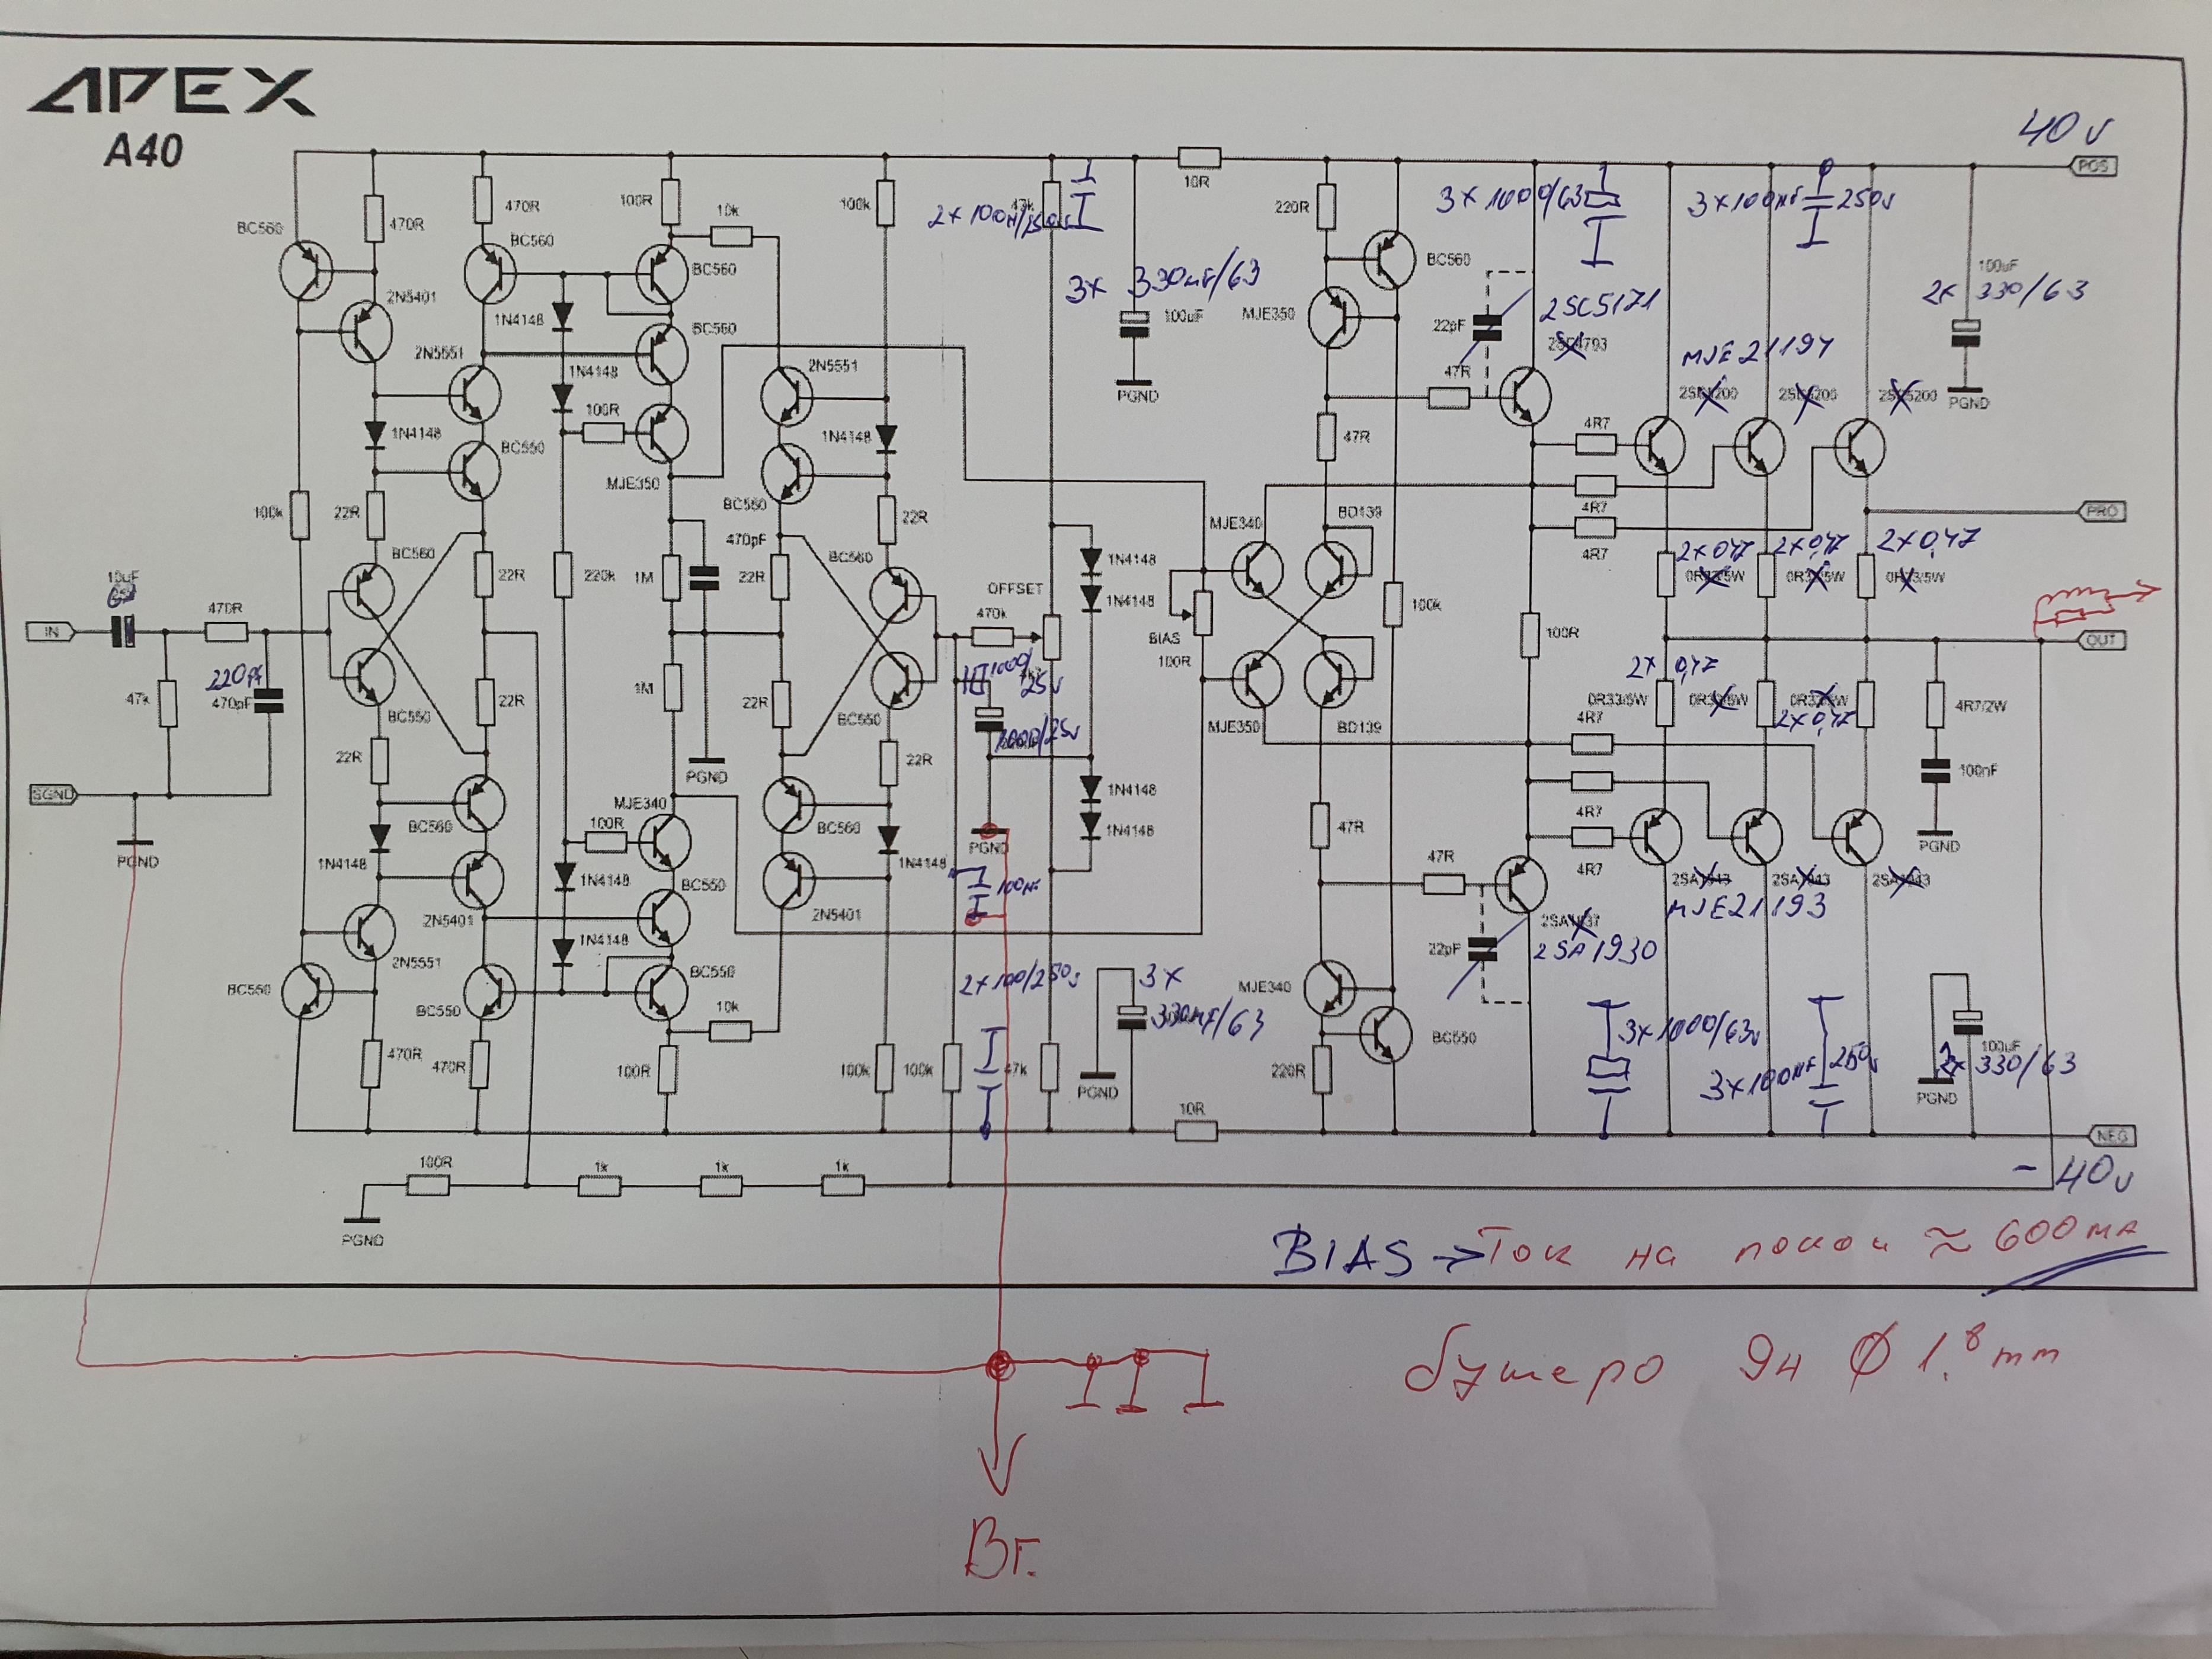 APEX
A40
40v
POS
10R
BC560
470R
470R
BC560
100R
10k
BC560
100k
47k
2x100н/250v
220R
3x1000/63
3x100nF 250v
BC560
100uF
2x 330/63
PGND
2N5401
1N4148
2N5551
BC560
3x 330mF/63
100uF
PGND
MJE350
22pF
2SC5171
47R
MJE21194
2SC5200
2SC5200
2SC5200
1N4148
100R
2N5551
1N4148
BC550
1N4148
MJE350
BC550
47R
4R7
4R7
4R7
PRO
100k
22R
BC560
22R
220k
1M
470pF
22R
BC560
22R
OFFSET
470k
1N4148
1N4148
BIAS
100R
MJE340
BD139
100k
100R
2x0,47
2x0,47
2x0,47
0R33/5W
0R33/5W
0R33/5W
10uF
IN
470R
OUT
47k
220pf
470pF
BC550
22R
1M
22R
BC550
1000/25v
1000/25v
MJE350
BD139
2x 0,47
0R33/5W
0R33/5W
0R33/5W
2x0,47
4R7
4R7/2W
100nF
PGND
SGND
PGND
22R
BC560
1N4148
MJE340
100R
PGND
BC560
22R
1N4148
PGND
1N4148
1N4148
47R
4R7
2SA1943
2SA1943
2SA1943
MJE21193
2N5401
1N4148
BC550
2N5401
100nF
47R
22pF
2SA1930
2N5551
BC550
BC550
1N4148
BC550
10k
2x100/250v
3x
330mF/63
PGND
MJE340
BC550
3x1000/63v
3x100nF 250v
100uF
2x 330/63
PGND
470R
470R
100R
100k
100k
47k
220R
10R
NEG
- 40v
100R
1k
1k
1k
PGND
BIAS → Ток на покой ≈ 600mA
бушеро 9н Ø 1.8mm
Вг.